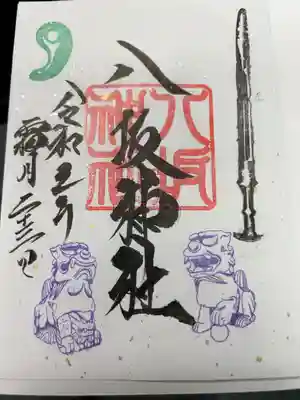 八坂神社
八坂神社
令和
霜月二十三日